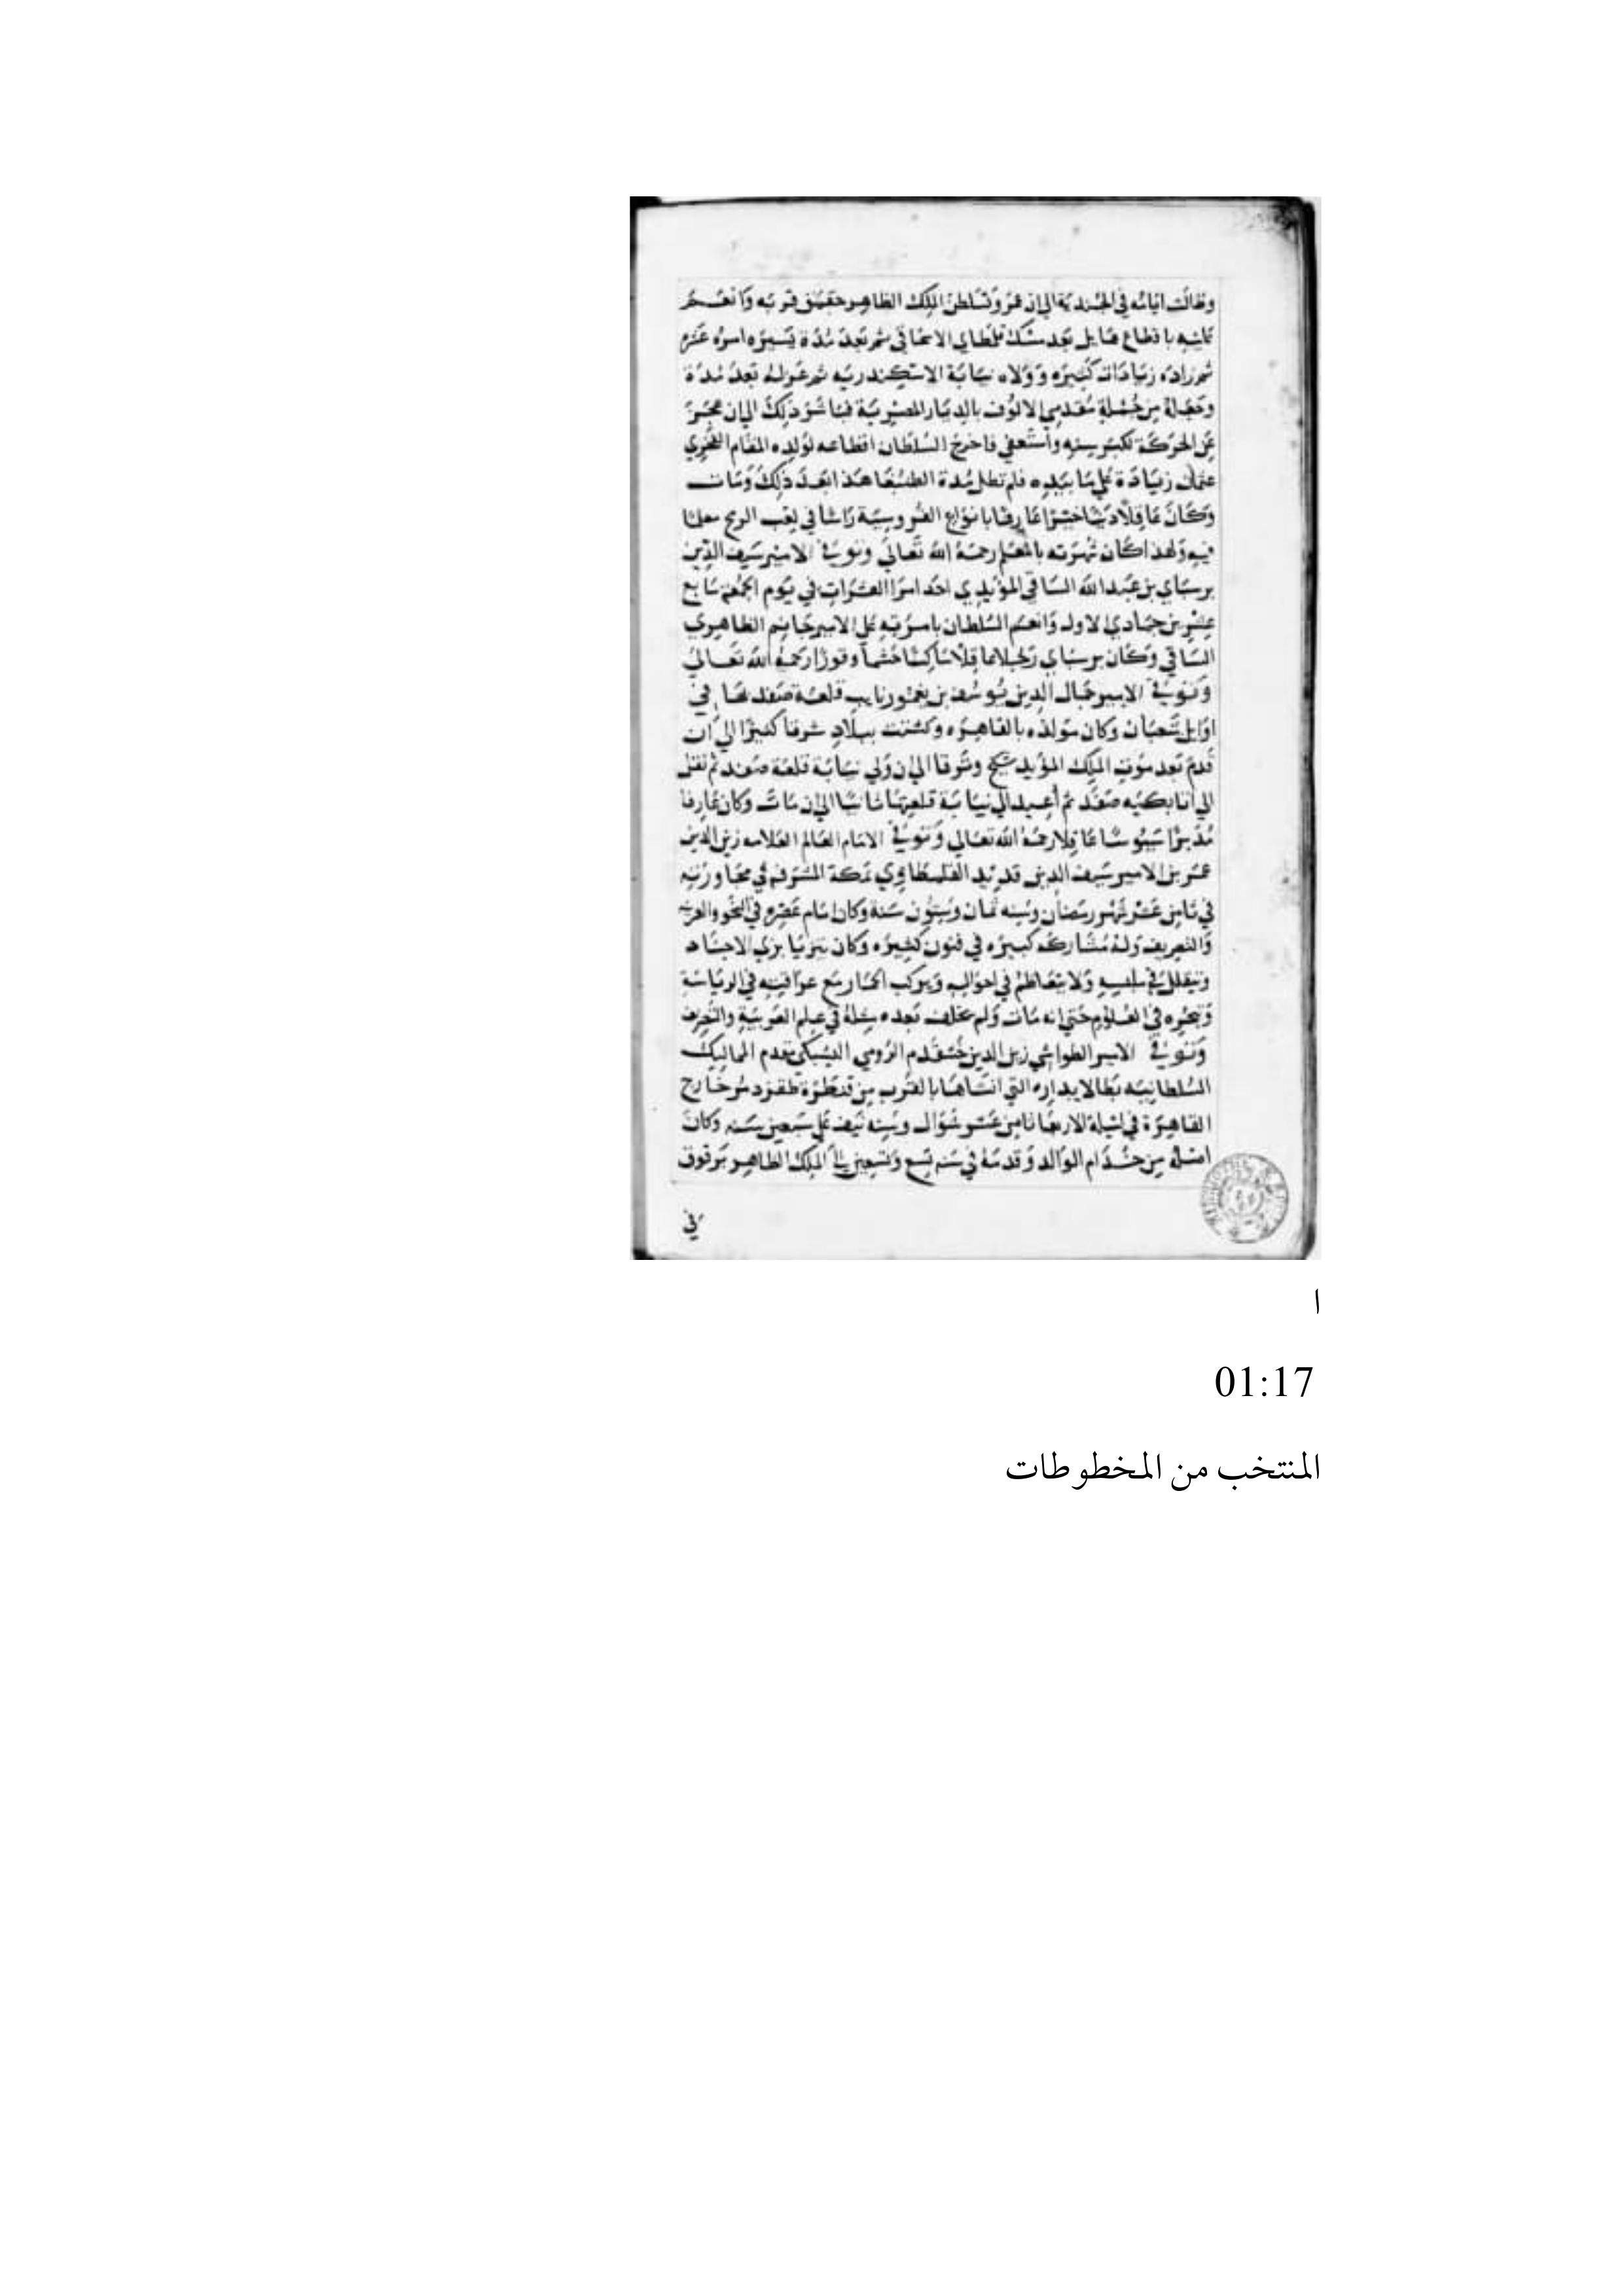 وطالت ايامه في الجندية الي ان عمر وتسلطن الملك الظاهر جقمق قربه وانعم
عليه باقطاع هايل بعد مسك قلمطاي الاسحاقي ثم بعد مدة يسيره امره عشره
ثم زاده زيادات كثيره وولاه نيابة الاسكندريه ثم عزله بعد مدة
وجعله من جملة مقدمي الالوف بالديار المصرية فباشر ذلك الي ان عجز
عن الحركة لكبر سنه واستعفي فاخرج السلطان اقطاعه لولده المقام الفخري
عثمان زيادة علي ما بيده فلم تطل مدة الطنبغا هذا بعد ذلك ومات
وكان عاقلا دينا خيرا عارفا بانواع الفروسية راسا في لعب الرمح معلما
فيه ولهذا كان شهرته بالمعلم رحمه الله تعالي وتوفي الامير سيف الدين
برسباي بن عبد الله الساقي المؤيدي احد امرا العشرات في يوم الجمعة سابع
عشرين جمادي الاول وانعم السلطان بامرته علي الامير جانم الظاهري
الساقي وكان برسباي رجلا عاقلا ساكنا حشما وقورا رحمه الله تعالي
وتوفي الامير جمال الدين يوسف بن يغمور نايب قلعة صفد بها في
اوايل شعبان وكان مولده بالقاهره وتشتت ببلاد شرقا كثيرا الي ان
قدم بعد موت الملك المؤيد شيخ وترقا الي ان ولي نيابة قلعة صفد ثم نقل
الي اتابكيه صفد ثم أعيد الي نيابة قلعتها ثانيا الي ان مات وكان عارفا
مدبرا سيوسا عاقلا رحمه الله تعالي وتوفي الامام العالم العلامه زين الدين
عمر بن الامير سيف الدين قديد القلمطاوي بمكة المشرفه في مجاورته
في ثامن عشر شهر رمضان وسنه ثمان وستون سنة وكان امام عصره في النحو والعربيه
والتصريف وله مشاركه كبيره في فنون كثيره وكان يتزيا بزي الاجناد
ويتقلل في ملبسه ولا يتعاظم في احواله ويركب الحمار مع عراقته في الرياسة
وتبحره في العلوم حتي انه مات ولم يخلف بعده مثله في علم العربية والتصريف
وتوفي الامير الطواشي زين الدين خشقدم الرومي اليشبكي مقدم المماليك
السلطانيه بطالا بداره التي انشاها بالقرب من قنطرة طقزدمر خارج
القاهرة في ليلة الاربعا ثامن عشر شوال وسنه نيف علي سبعين سنه وكان
اصله من خدام الوالد وقدمه في سنه تسع وتسعين الي الملك الظاهر برقوق
في
ا
01:17
المنتخب من المخطوطات